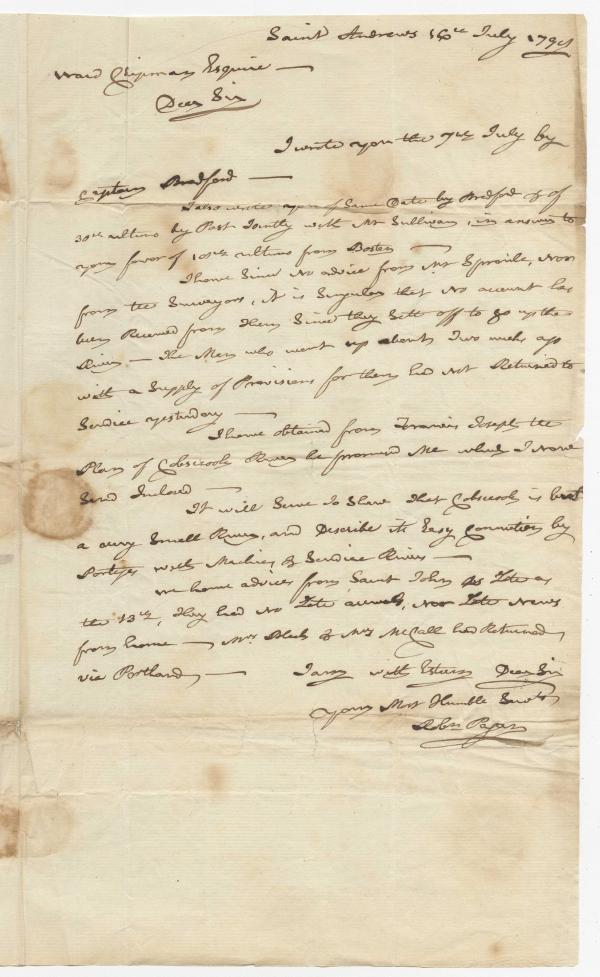 Saint Andrews 16th July 1798
Ward Chipman Esquire —
Dear Sir
I wrote you the 7th July by
Captain Bradford —
I also wrote you of Same Date by Bradford & of
30th ultimo by Post Jointly with Mr Sullivan, in answer to
your favor of 10th ultimo from Boston —
I have Since No advice from Mr Sproule, Nor
from the Surveyors, it is Singular that No account has
been Received from them Since they Sett off to go up the
River — the Men who went up about Two weeks ago
with a Supply of Provisions for them had not Returned to
Scudiac yesterday —
I have obtained from Francis Joseph the
Plan of Cobscook River he promised Me which I now
Send Inclosed —
It will Serve to Shew that Cobscook is but
a very Small River, and Describe its Easy Connection by
Portages with Machias & Scudiac River —
we have advices from Saint John as Late as
the 13th, they had No Late arrivals, Nor Late News
from home — Mrs Black & Mrs McCall had Returned
via Portland, — I am with Esteem Dear Sir
your Most Humble Servt
Robt Pagan